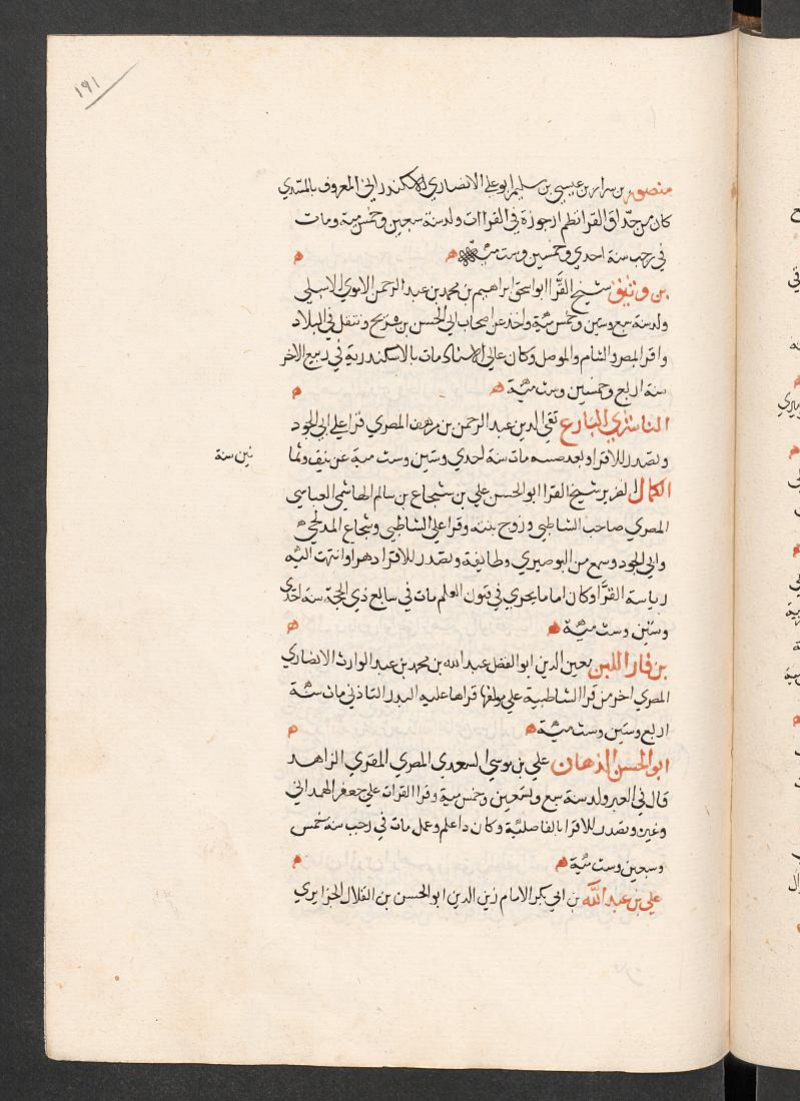 ١٩١
منصور بن سرار بن عيسى بن سليم ابو علي الانصاري الاسكندراني المعروف بالمسدي
كان من حذاق القرا نظم ارجوزة في القراات ولد سنة سبعين وخمس مية ومات
في رجب سنة احدي وخمسين وست مئة
بن وثيق شيخ القرا ابو اسحق ابراهيم بن محمد بن عبد الرحمن الاموي الاشبيلي
ولد سنة سبع وستين وخمس مئة واخذ عن اصحاب ابي الحسن بن شريح وتنقل في البلاد
واقرا بمصر والشام والموصل وكان عالي الاسناد مات بالاسكندرية في ربيع الاخر
سنة اربع وخمسين وست مئة
الناشري البارع تقي الدين عبد الرحمن بن مرهف المصري قرا علي ابي الجود
وتصدر للاقرا وبعد صيته مات سنة احدي وستين وست مية عن نيف وثما
نين سنة
الكمال الضرير شيخ القرا ابو الحسن علي بن شجاع بن سالم الهاشمي العباسي
المصري صاحب الشاطبي وزوج بنته وقرا علي الشاطبي وشجاع المدلجي
وابي الجود وسمع من البوصيري وطايفة وتصدر للاقرا دهرا وانتهت اليه
رياسة القرا وكان اماما يجري في فنون العلم مات في سابع ذي الحجة سنة احدي
وستين وست مئة
بن فار اللبن معين الدين ابو الفضل عبد الله بن محمد بن عبد الوارث الانصاري
المصري اخر من قرا الشاطبية علي مولفها قراها عليه البدر التاذفي مات سنة
اربع وستين وست مئة
ابو الحسن الدهان علي بن موسي السعدي المصري المقري الزاهد
قال في العبر ولد سنة سبع وتسعين وخمس مية وقرا القرات علي جعفر الهمداني
وغيره وتصدر للاقرا بالفاضلية وكان ذا علم وعمل مات في رجب سنة خمس
وسبعين وست مئية
علي بن عبد الله بن ابي بكر الامام زين الدين ابو الحسن بن القلال الجزايري